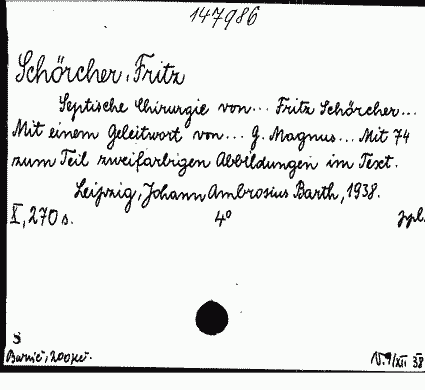 147986
Schörcher, Fritz
Septische Chirurgie von... Fritz Schörcher...
Mit einem Geleitwort von... G. Magnus... Mit 74
zum Teil zweifarbigen Abbildungen im Text.
Leipzig, Johann Ambrosius Barth, 1938.
X, 270 s. 4° ppl.
S
9/XII 38